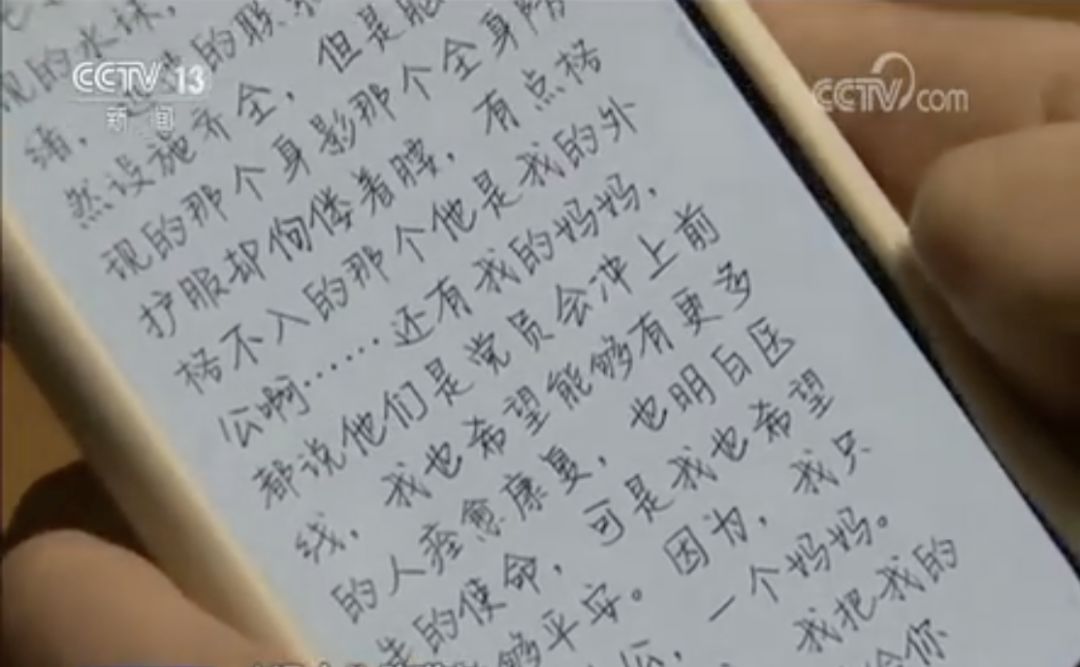 CCTV 13
新闻
CCTV.com
现的水球,
绪,
的那
然设施齐全,但是眼
现的那个身影那个全身防
护服却佝偻着腰,有点格
格不入的那个他是我的外
公啊……还有我的妈妈,
都说他们是党员会冲上前
线,我也希望能够有更多
的人痊愈康复,也明白医
的使命,可是我也希望
够平安。因为,我只
公,一个妈妈。
我把我的
给你